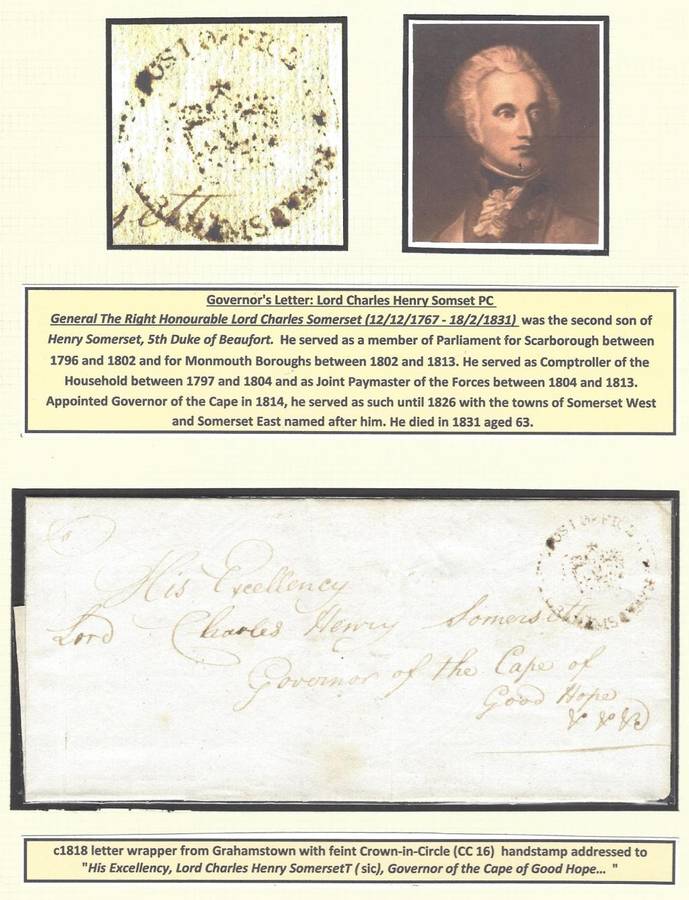 POST OFFICE
Governor's Letter: Lord Charles Henry Somset PC
General The Right Honourable Lord Charles Somerset (12/12/1767 - 18/2/1831) was the second son of
Henry Somerset, 5th Duke of Beaufort. He served as a member of Parliament for Scarborough between
1796 and 1802 and for Monmouth Boroughs between 1802 and 1813. He served as Comptroller of the
Household between 1797 and 1804 and as Joint Paymaster of the Forces between 1804 and 1813.
Appointed Governor of the Cape in 1814, he served as such until 1826 with the towns of Somerset West
and Somerset East named after him. He died in 1831 aged 63.
POST OFFICE
His Excellency
Lord Charles Henry Somersett
Governor of the Cape of
Good Hope
&c &c &c
c1818 letter wrapper from Grahamstown with feint Crown-in-Circle (CC 16) handstamp addressed to
"His Excellency, Lord Charles Henry SomersetT ( sic), Governor of the Cape of Good Hope... "